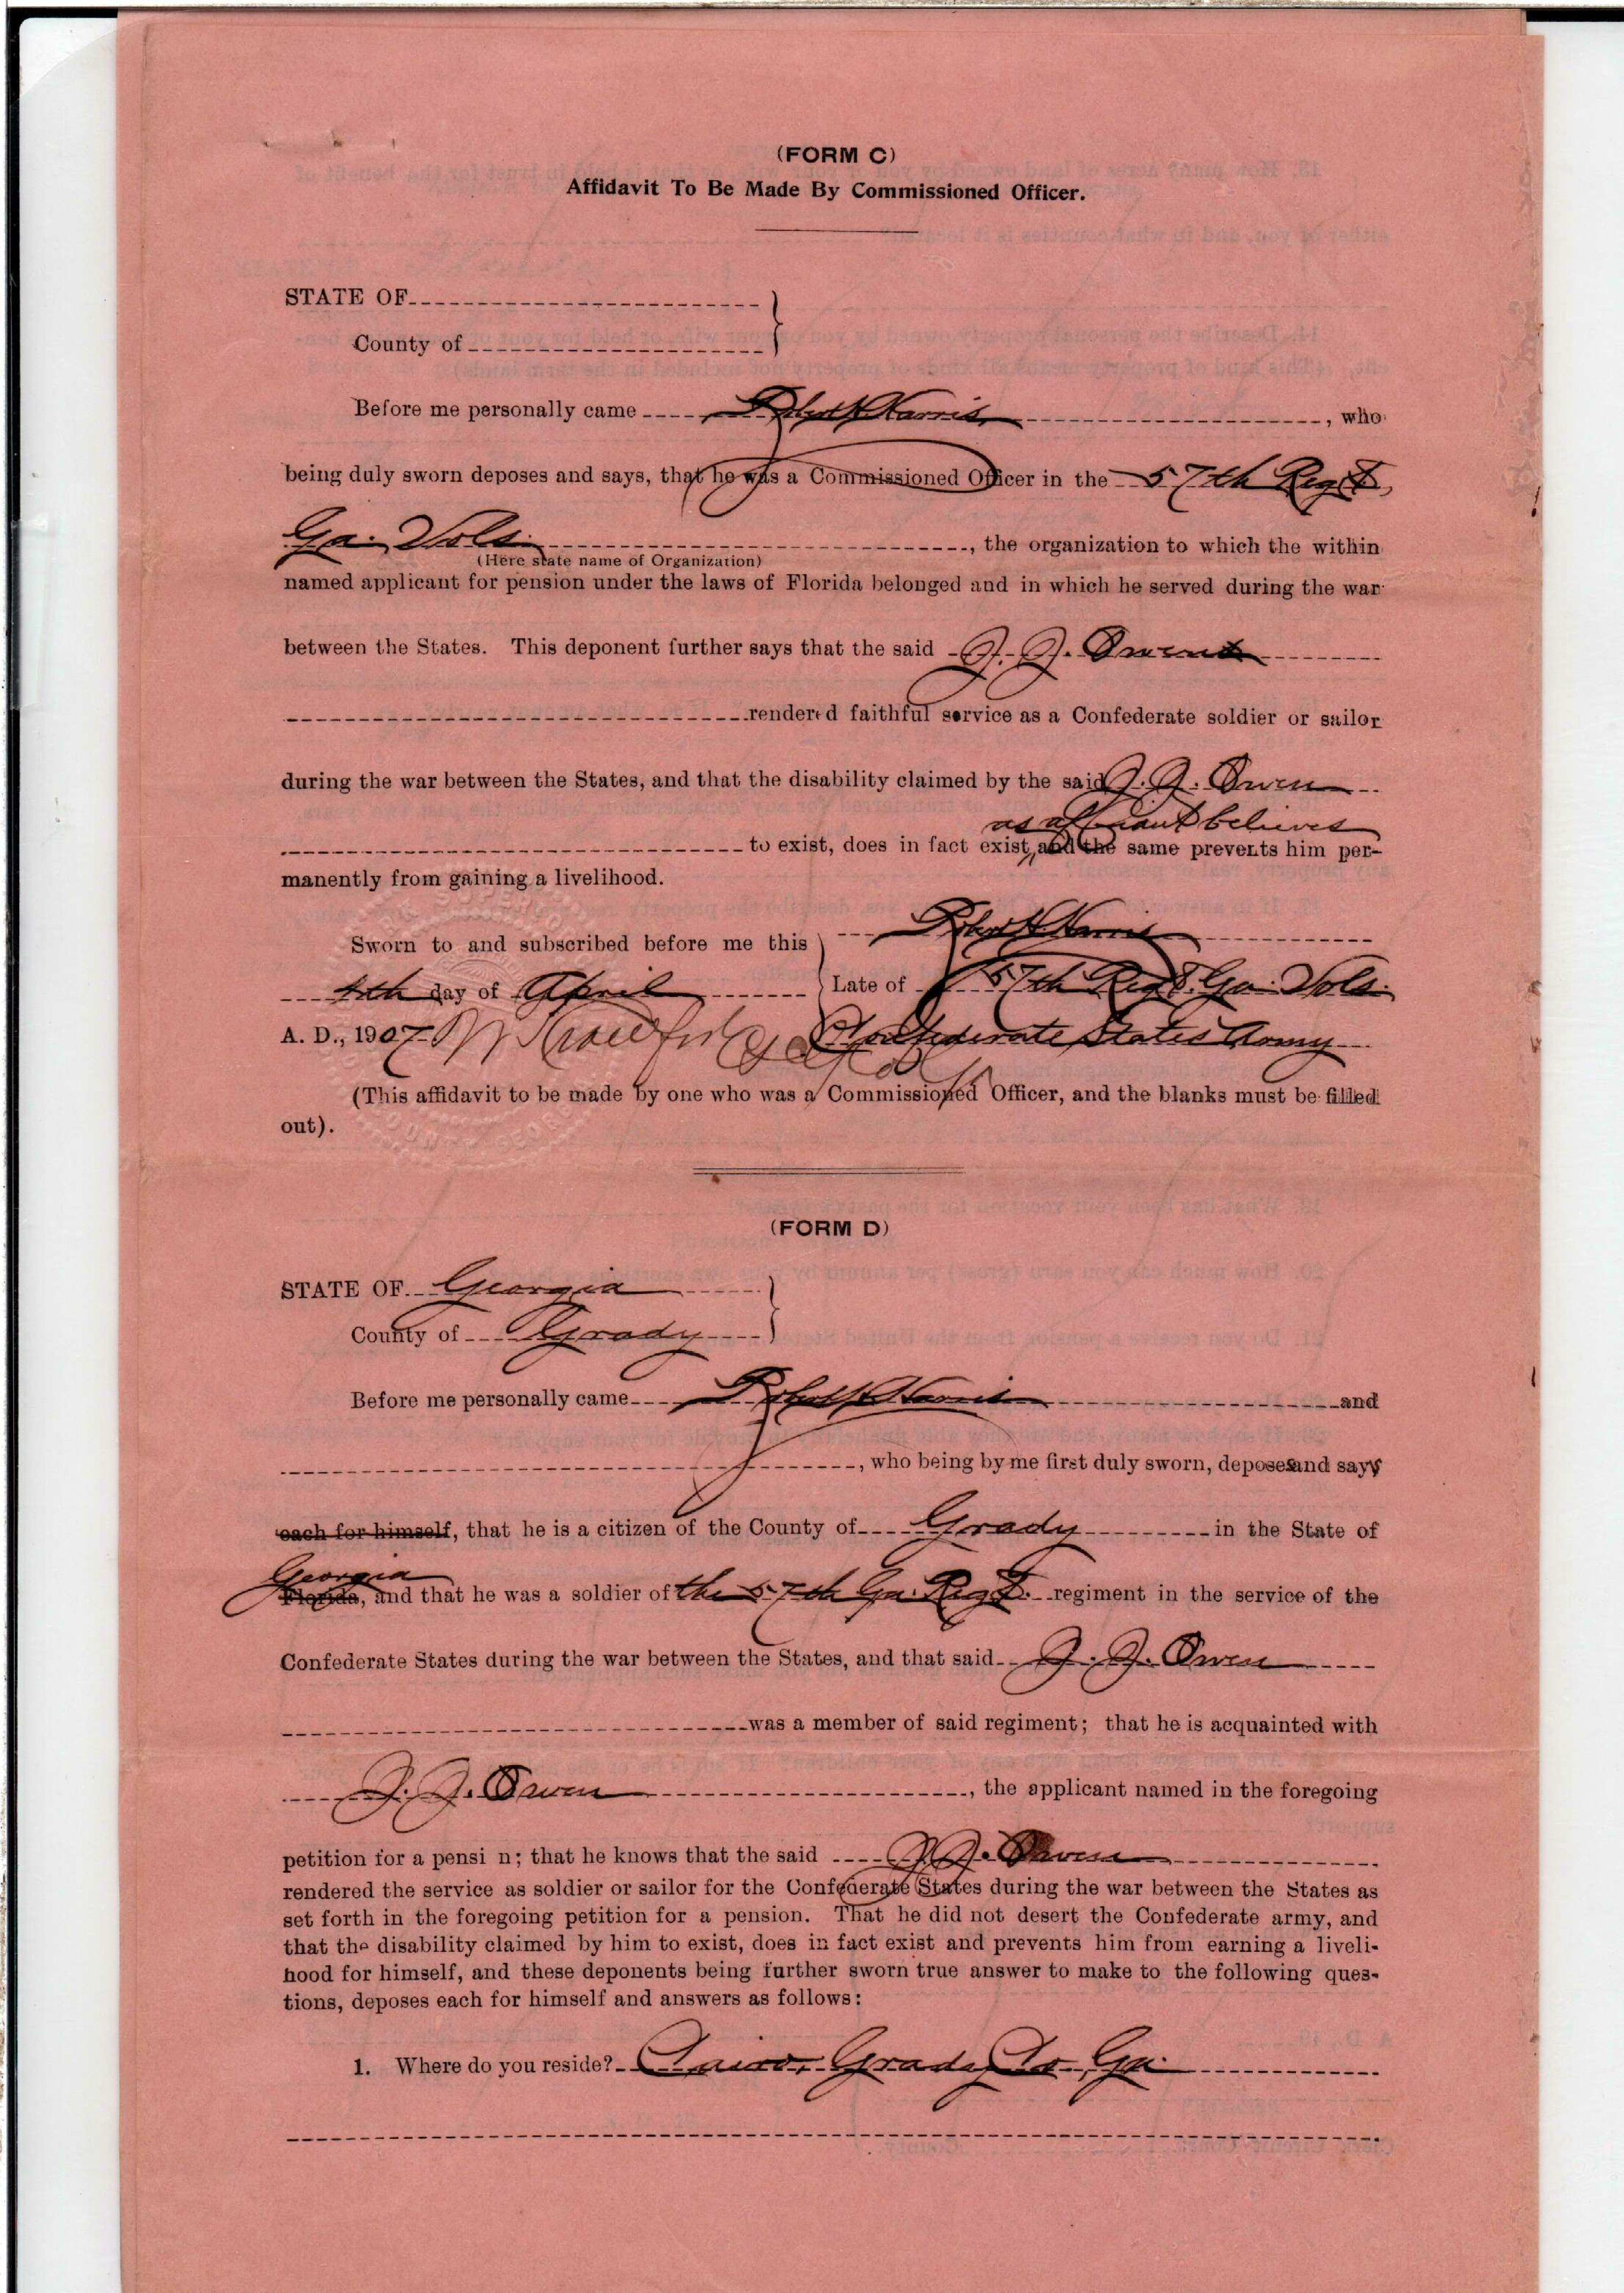 (FORM C)
Affidavit To Be Made By Commissioned Officer.
STATE OF
County of
Before me personally came Robert H. Harris, who
being duly sworn deposes and says, that he was a Commissioned Officer in the 57th Reg't,
Ga. Vols., the organization to which the within
(Here state name of Organization)
named applicant for pension under the laws of Florida belonged and in which he served during the war
between the States. This deponent further says that the said J. J. Owen
rendered faithful service as a Confederate soldier or sailor
during the war between the States, and that the disability claimed by the said J. J. Owen
as affiant believes
to exist, does in fact exist, and the same prevents him per-
manently from gaining a livelihood.
Robert H. Harris
Sworn to and subscribed before me this
4th day of April
Late of 57th Reg't. Ga. Vols.
A. D., 1907
Confederate States Army
(This affidavit to be made by one who was a Commissioned Officer, and the blanks must be filled
out).
(FORM D)
STATE OF Georgia
County of Grady
Before me personally came Robert H. Harris and
, who being by me first duly sworn, deposes and says
each for himself, that he is a citizen of the County of Grady in the State of
Georgia
Florida, and that he was a soldier of the 57th Ga. Reg't. regiment in the service of the
Confederate States during the war between the States, and that said J. J. Owen
was a member of said regiment; that he is acquainted with
J. J. Owen, the applicant named in the foregoing
petition for a pensi n; that he knows that the said J. J. Owen
rendered the service as soldier or sailor for the Confederate States during the war between the States as
set forth in the foregoing petition for a pension. That he did not desert the Confederate army, and
that the disability claimed by him to exist, does in fact exist and prevents him from earning a liveli-
hood for himself, and these deponents being further sworn true answer to make to the following ques-
tions, deposes each for himself and answers as follows:
1. Where do you reside? Cairo, Grady Co. Ga.